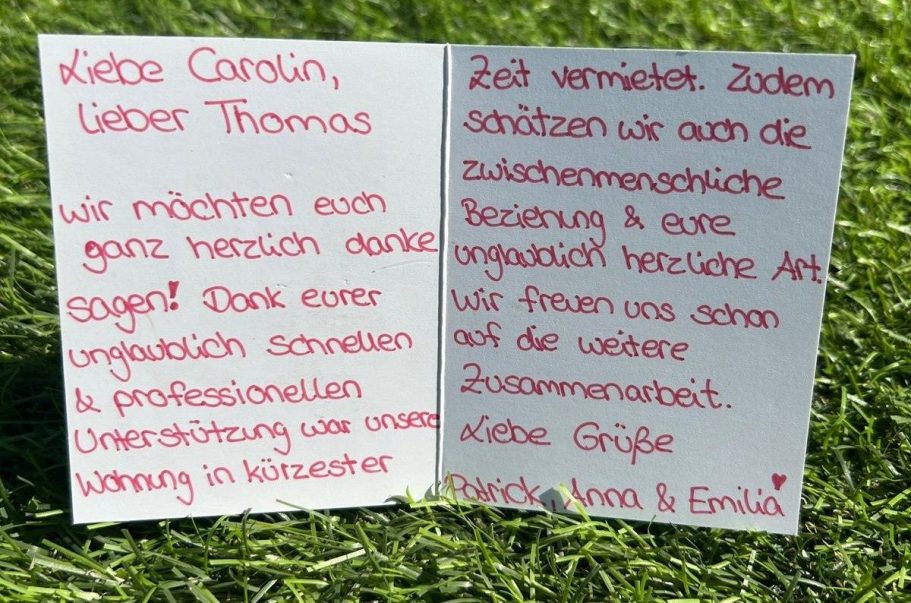 Liebe Carolin,
lieber Thomas
wir möchten euch
ganz herzlich danke
sagen! Dank eurer
unglaublich schnellen
& professionellen
Unterstützung war unsere
Wohnung in kürzester
Zeit vermietet. Zudem
schätzen wir auch die
zwischenmenschliche
Beziehung & eure
unglaublich herzliche Art.
Wir freuen uns schon
auf die weitere
Zusammenarbeit.
Liebe Grüße
Patrick, Anna & Emilia